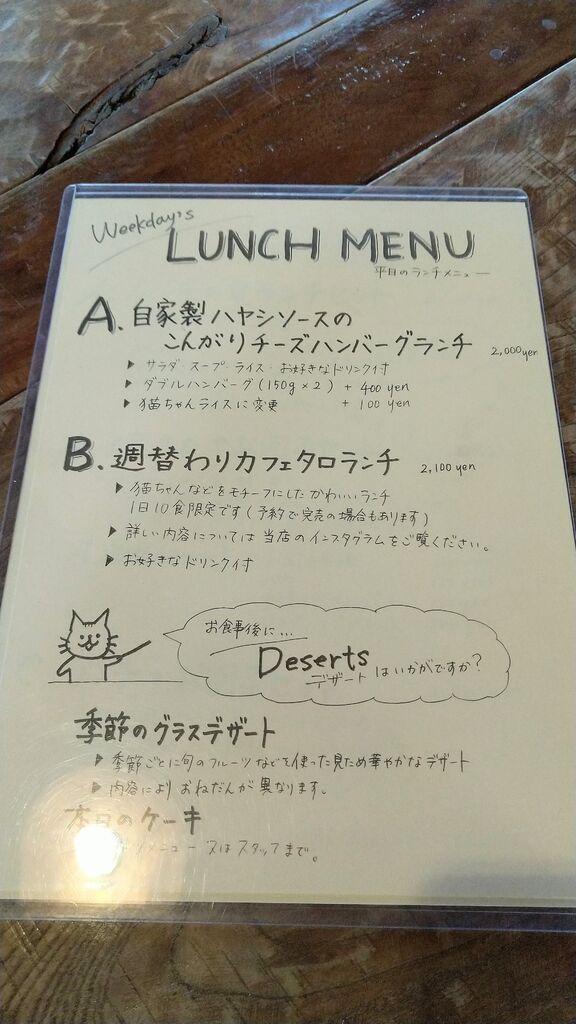 Weekday's
LUNCH MENU
平日のランチメニュー
A. 自家製ハヤシソースの
こんがりチーズハンバーグランチ 2,000yen
▶ サラダ・スープ・ライス・お好きなドリンク付
▶ ダブルハンバーグ(150g×2) + 400 yen
▶ 猫ちゃんライスに変更 + 100 yen
B. 週替わりカフェタロランチ 2,100yen
▶ 猫ちゃんなどをモチーフにしたかわいいランチ
1日10食限定です(予約で完売の場合もあります)
▶ 詳しい内容については当店のインスタグラムをご覧ください。
▶ お好きなドリンク付
お食事後に...
Deserts
デザート はいかがですか?
季節のグラスデザート
▶ 季節ごとに旬のフルーツなどを使った見ため華やかなデザート
▶ 内容によりおねだんが異なります。
本日のケーキ
メニュー又はスタッフまで。